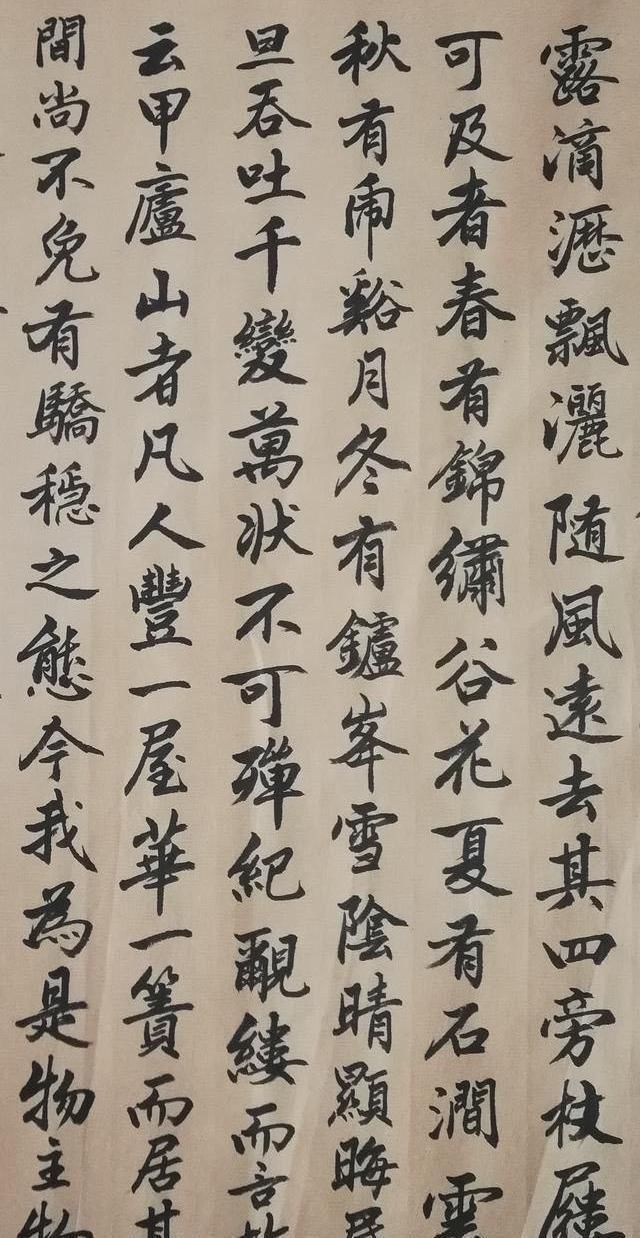 露滴瀝飄灑随風遠去其四旁杖屨
可及者春有錦繡谷花夏有石澗雲
秋有虎谿月冬有鑪峯雪陰晴顯晦
旦吞吐千變萬狀不可殫紀覼縷而言
云甲廬山者凡人豐一屋華一簀而居其
間尚不免有驕穩之態今我為是物主物